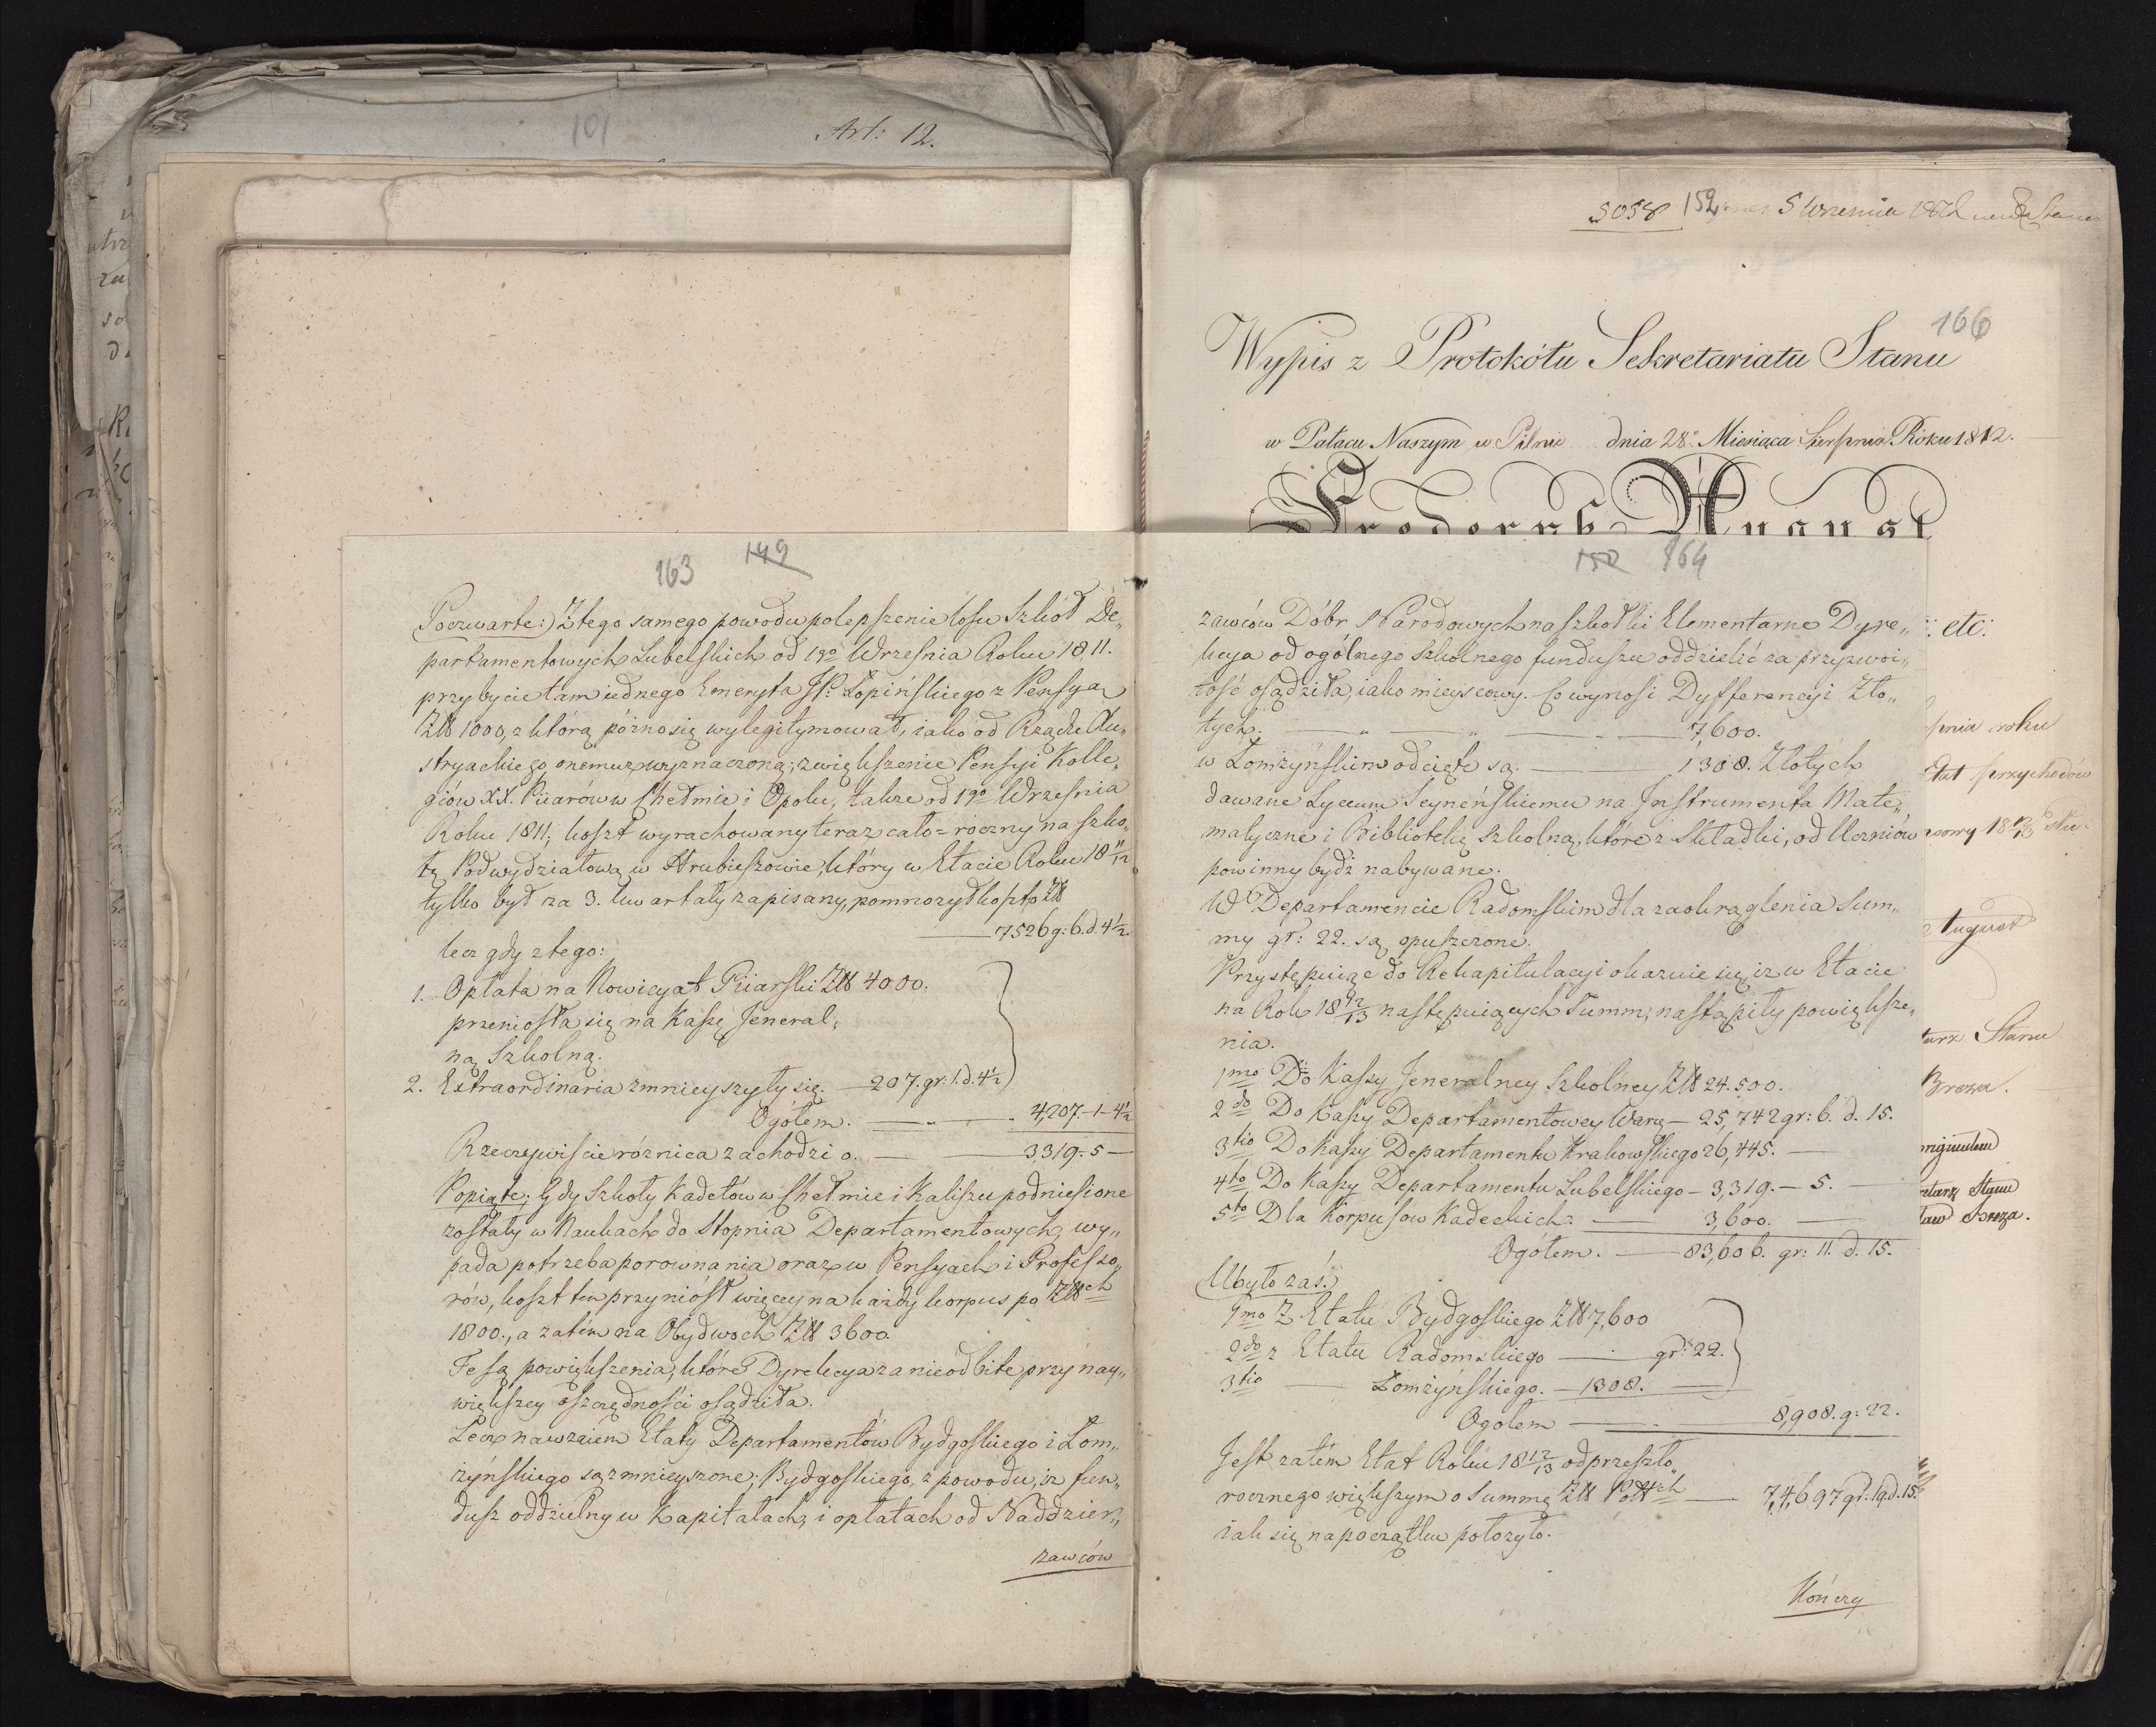 101
Art: 12.
5058
152
5 Września
166
Wypis z Protokółu Sekretariatu Stanu
w Pałacu Naszym w Pilnic dnia 28. Miesiąca Sierpnia Roku 1812.
Frederyk August
163 149
Poczwarte:) Z tego samego powodu polepszenie losu Szkół De„
partamentowych Lubelskich od 1go Września Roku 1811.
przybycie tam iednego Emeryta JP. Łopińskiego z Pensyą
Złł 1000, z którą późno się wylegitymował, iako od Rządu Au„
stryackiego onemuż wyznaczoną; zwiększenie Pensyi Kolle„
giów XX. Piiarów w Chełmie i Opolu, także od 1go Września
Roku 1811; koszt wyrachowany teraz cało-roczny na szko„
łę Podwydziałową w Hrubieszowie, który w Etacie Roku 18 11/12
tylko był za 3. kwartały zapisany, pomnożył koszta Złł
— 7526 g: 6. d. 4½.
lecz gdy z tego:
1. Opłata na Nowicyat Piiarski Złł 4000.
przeniosła się na Kassę Jeneral„
ną Szkolną.
2. Extraordinaria zmnieyszyły się. — 207. gr: 1. d. 4½
Ogółem. — „ — 4,207.-1-4½
Rzeczywiście różnica zachodzi o. — — 3,319.-5 —
Popiąte; Gdy Szkoły Kadetów w Chełmie i Kaliszu podniesione
zostały w Naukach do Stopnia Departamentowych, wy„
pada potrzeba porównania oraz w Pensyach i Professo„
rów, koszt ten przyniósł więcey na każdy korpus po Złłch
1800., a zatém na Obydwoch Złł 3600.
Te są powiększenia, które Dyrekcya za nieódbite przy nay„
większey oszczędności osądziła.
Lecz nawzaiem Etaty Departamentów Bydgoskiego i Łom„
żyńskiego są zmnieyszone; Bydgoskiego, z powodu, iż fun„
dusz oddzielny w Kapitałach, i opłatach od Naddzier„
żawców
150 164
żawców Dóbr Narodowych na szkołki Elementarne Dyre„
kcya od ogólnego szkolnego funduszu oddzielić za przyzwoi„
tość osądziła, iako mieyscowy. Co wynosi Dyfferencyi Zło„
tych. — „ — „ — „ — 7,600.
w Łomżyńskim odcięte są. — 1308. Złotych
dawane Lyceum Seyneńskiemu na Jnstrumenta Mate„
matyczne i Bibliotekę szkolną, które z Składki, od Uczniów
powinny bydź nabywane.
W Departamencie Radomskim dla zaokrąglenia Sum„
my gr: 22. są opuszczone.
Przystępuiąc do Rekapitulacyi okazuie się, iż w Etacie
na Rok 18 12/13 następuiących Summ, nastąpiły powiększe„
nia.
1mo Do Kassy Jeneralney Szkolney Złł 24.500.
2do Do Kassy Departamentowey Warsz — 25,742 gr: 6. d. 15.
3tio Do Kassy Departamentu Krakowskiego 26,445. —
4to Do Kassy Departamentu Lubelskiego — 3,319. — 5. —
5to Dla Korpusow Kadeckich. — 3,600. —
Ogółem. — 83,606. gr: 11. d. 15.
Ubyło zaś.)
1mo Z Etatu Bydgoskiego Złł 7,600
2do z Etatu Radomskiego — gr: 22.
3tio — Łomżyńskiego. — 1308. —
Ogółem — 8,908. g: 22.
Jest zatém Etat Roku 18 12/13 od przeszło„
rocznego większym o Summę Złł Polłch — 74,697 gr: 19. d. 15.
iak się na początku położyło.
Kończy
etc:
pnia roku
Etat przychodów
August
tarz Stanu
Breza.
oryginałem
retarz Stanu
ław Breza.